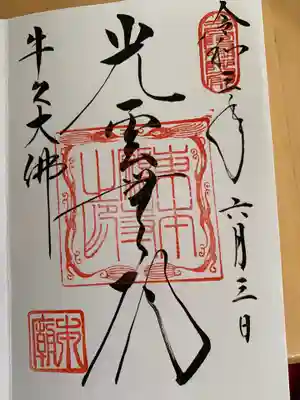 令和三年六月三日
光雲無碍
牛久大佛
東本願寺之印